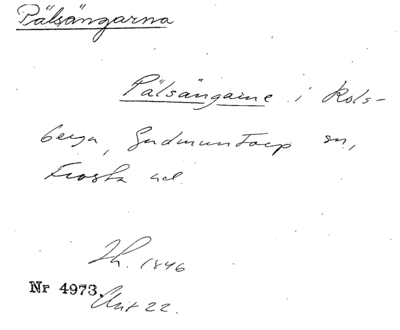 Pälsängarna
Pälsängarne i Rols-
berga, Gudmuntorp sn,
Frosta hd.
Jh. 1846
Nr 4973.
Akt 22.